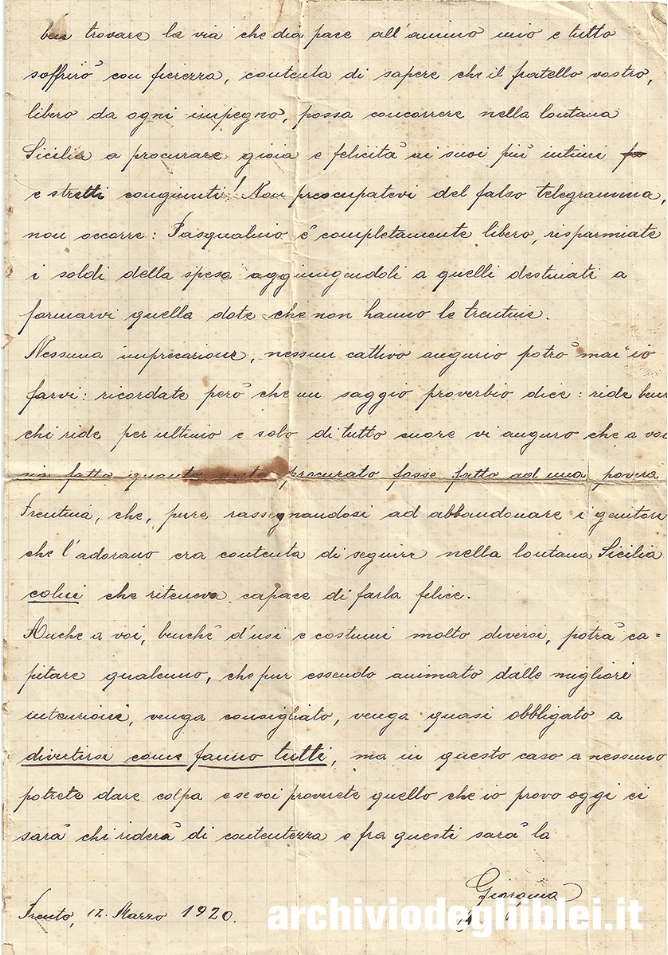 ben trovare la via che dia pace all'animo mio e tutto
soffrirò con fierezza, contenta di sapere che il fratello vostro,
libero da ogni impegno, possa concorrere nella lontana
Sicilia a procurare gioia e felicità ai suoi più intimi
e stretti congiunti! Non preocupatevi del falso telegramma,
non occorre: Pasqualino è completamente libero, risparmiate
i soldi della spesa aggiungendoli a quelli destinati a
formarvi quella dote che non hanno le trentine.
Nessuna imprecazione, nessun cattivo augurio potrò mai io
farvi: ricordate però che un saggio proverbio dice: ride bene
chi ride per ultimo e solo di tutto cuore vi auguro che a voi
sia fatto quanto procurato fosse fatto ad una povera
Trentina, che, pure rassegnandosi ad abbandonare i genitori
che l'adorano era contenta di seguire nella lontana Sicilia
colui che riteneva capace di farla felice.
Anche a voi, benchè d'usi e costumi molto diversi, potrà ca=
pitare qualcuno, che pur essendo animato dalle migliori
intenzioni, venga consigliato, venga quasi obbligato a
divertirsi come fanno tutti, ma in questo caso a nessuno
potrete dare colpa e se voi proverete quello che io provo oggi ci
sarà chi riderà di contentezza e fra questi sarà la
Trento, 12 Marzo 1920.
archiviodegliiblei.it